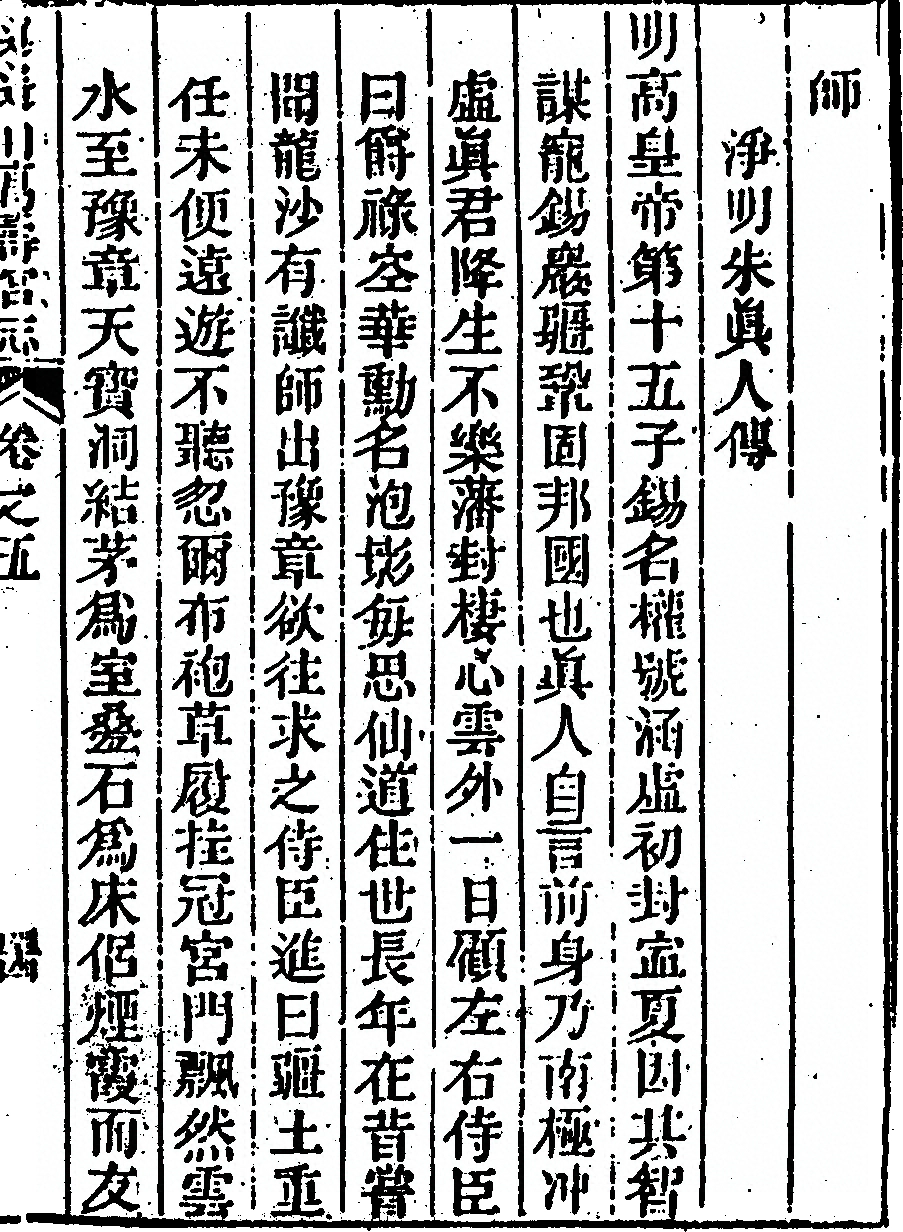 師
淨明朱眞人傳
明高皇帝第十五子錫名權號涵虛初封寧夏因其智
謀寵錫嚴疆鞏固邦國也眞人自言前身乃南極冲
虛眞君降生不樂藩封棲心雲外一日顧左右侍臣
曰爵祿空華勳名泡影每思仙道住世長年在昔嘗
聞龍沙有讖師出豫章欲往求之侍臣進曰疆土重
任未便遠遊不聽忽爾布袍草履挂冠宮門飄然雲
水至豫章天寶洞結茅爲室壘石爲床侶煙霞而友
逍遙山萬壽宮志 卷之五